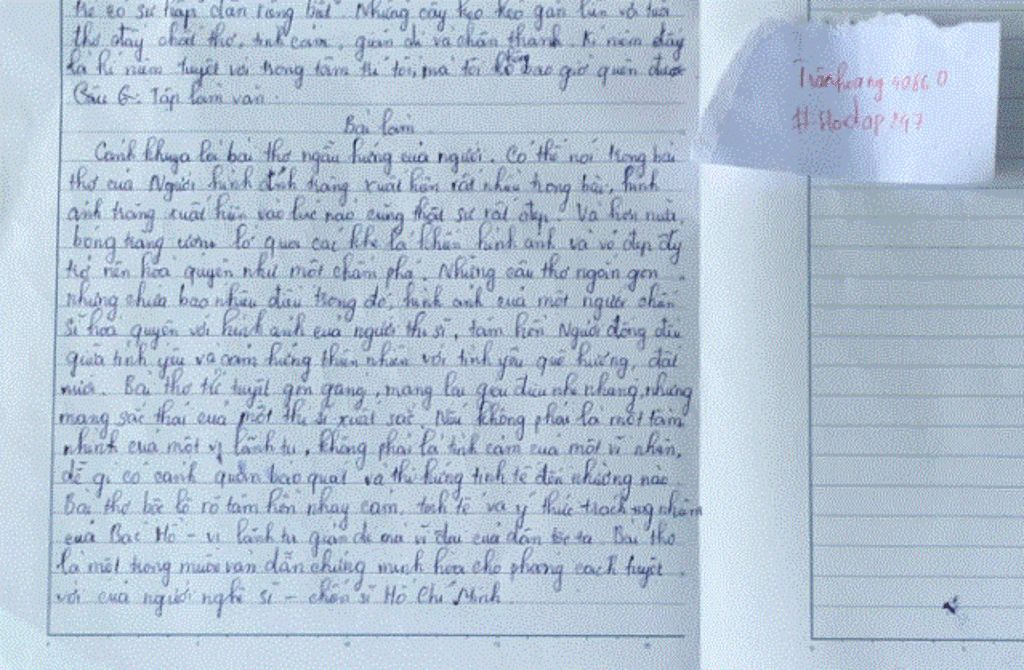 thơ đầy chất thơ, tình cảm, giản dị và chân thành. Kỉ niệm đây
là kỉ niệm tuyệt vời trong tâm trí tôi, mà tôi bao giờ quên được
Câu 6: Tập làm văn.
Bài làm
Cảnh khuya là bài thơ ngẫu hứng của người. Có thể nói trong bài
thơ của Người hình ảnh trăng xuất hiện rất nhiều trong bài, hình
ảnh trăng xuất hiện vào lúc nào cũng thật sự rất đẹp. Và hơn nữa,
bóng trăng lồ qua các khe lá khiến hình ảnh và vẻ đẹp ấy
trở nên hòa quyện như một chấm phá. Những câu thơ ngắn gọn
nhưng chứa bao nhiêu điều trong đó, hình ảnh của một người chiến
sĩ hòa quyện với hình ảnh của người thi sĩ, tâm hồn Người đồng điệu
giữa tình yêu và cảm hứng thiên nhiên với tình yêu quê hương, đất
nước. Bài thơ tứ tuyệt gọn gàng, mang lại giai điệu nhẹ nhàng, nhưng
mang sắc thái của một thi sĩ xuất sắc. Nếu không phải là một tầm
nhìn của một vị lãnh tụ, không phải là tình cảm của một vĩ nhân,
dễ gì có cảnh quan bao quát và thi hứng tinh tế đến nhường nào.
Bài thơ bộc lộ rõ tâm hồn nhạy cảm, tinh tế và ý thức trách nhiệm
của Bác Hồ - vị lãnh tụ giản dị mà vĩ đại của dân tộc ta. Bài thơ
là một trong muôn vàn dẫn chứng minh họa cho phong cách tuyệt
vời của người nghệ sĩ - chiến sĩ Hồ Chí Minh.
Trânhoang 40860
# Hoctap 247